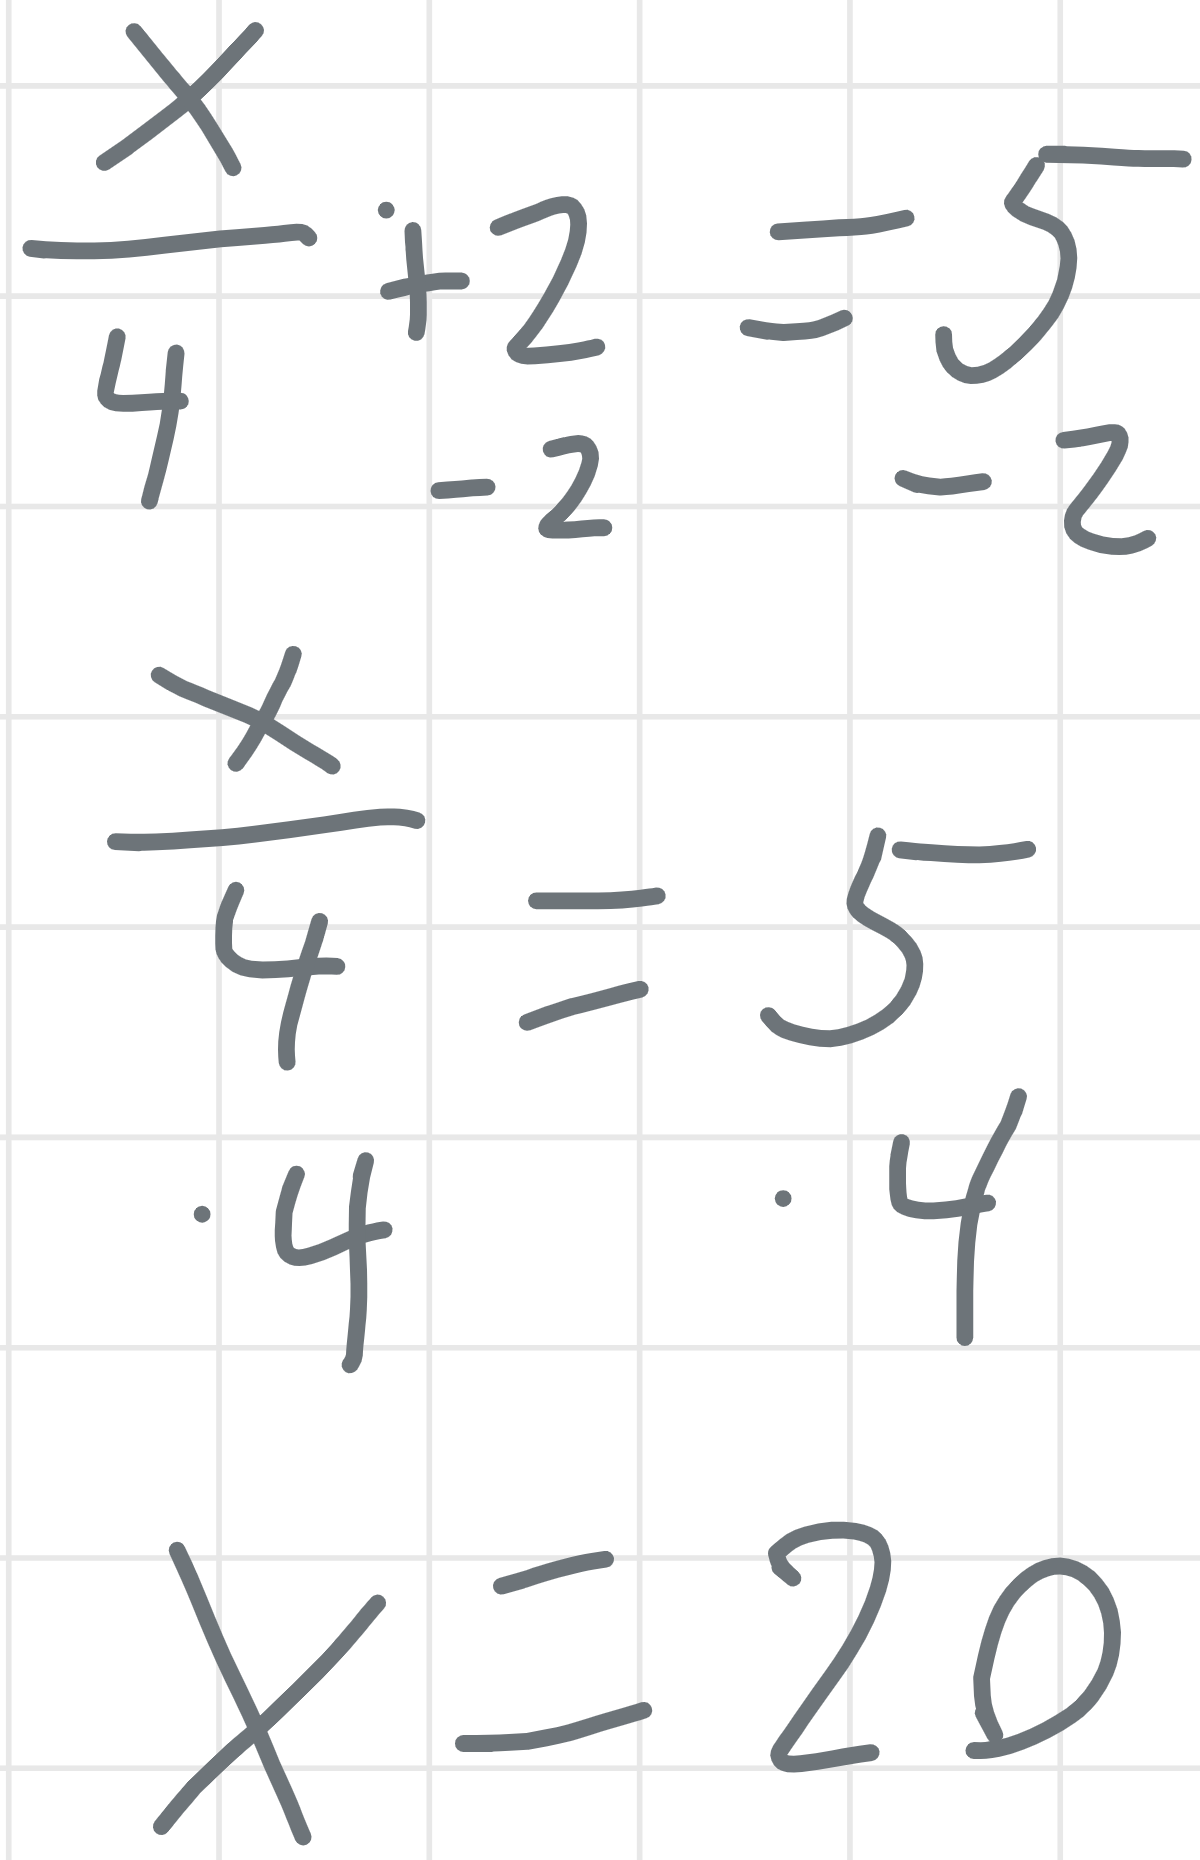 x/4 + 2 = 5
- 2 - 2
x/4 = 5
· 4 · 4
x = 20